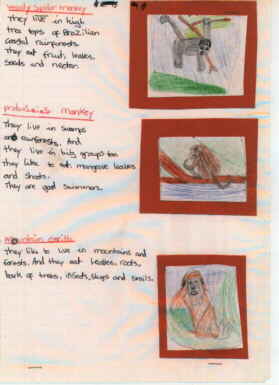 woolly spider monkey
They live in high
tree tops of Brazilian
coastal rainforests.
They eat fruit, leaves,
Seeds and nectar.
proboscis monkey
They live in swamps
and rainforests. And
they live in big groups too
they like to eat mangrove leaves
and shoots.
They are good swimmers.
Mountain gorilla
They like to live in mountains and
forests. And they eat leaves, roots,
bark of trees, insects, slugs and snails.